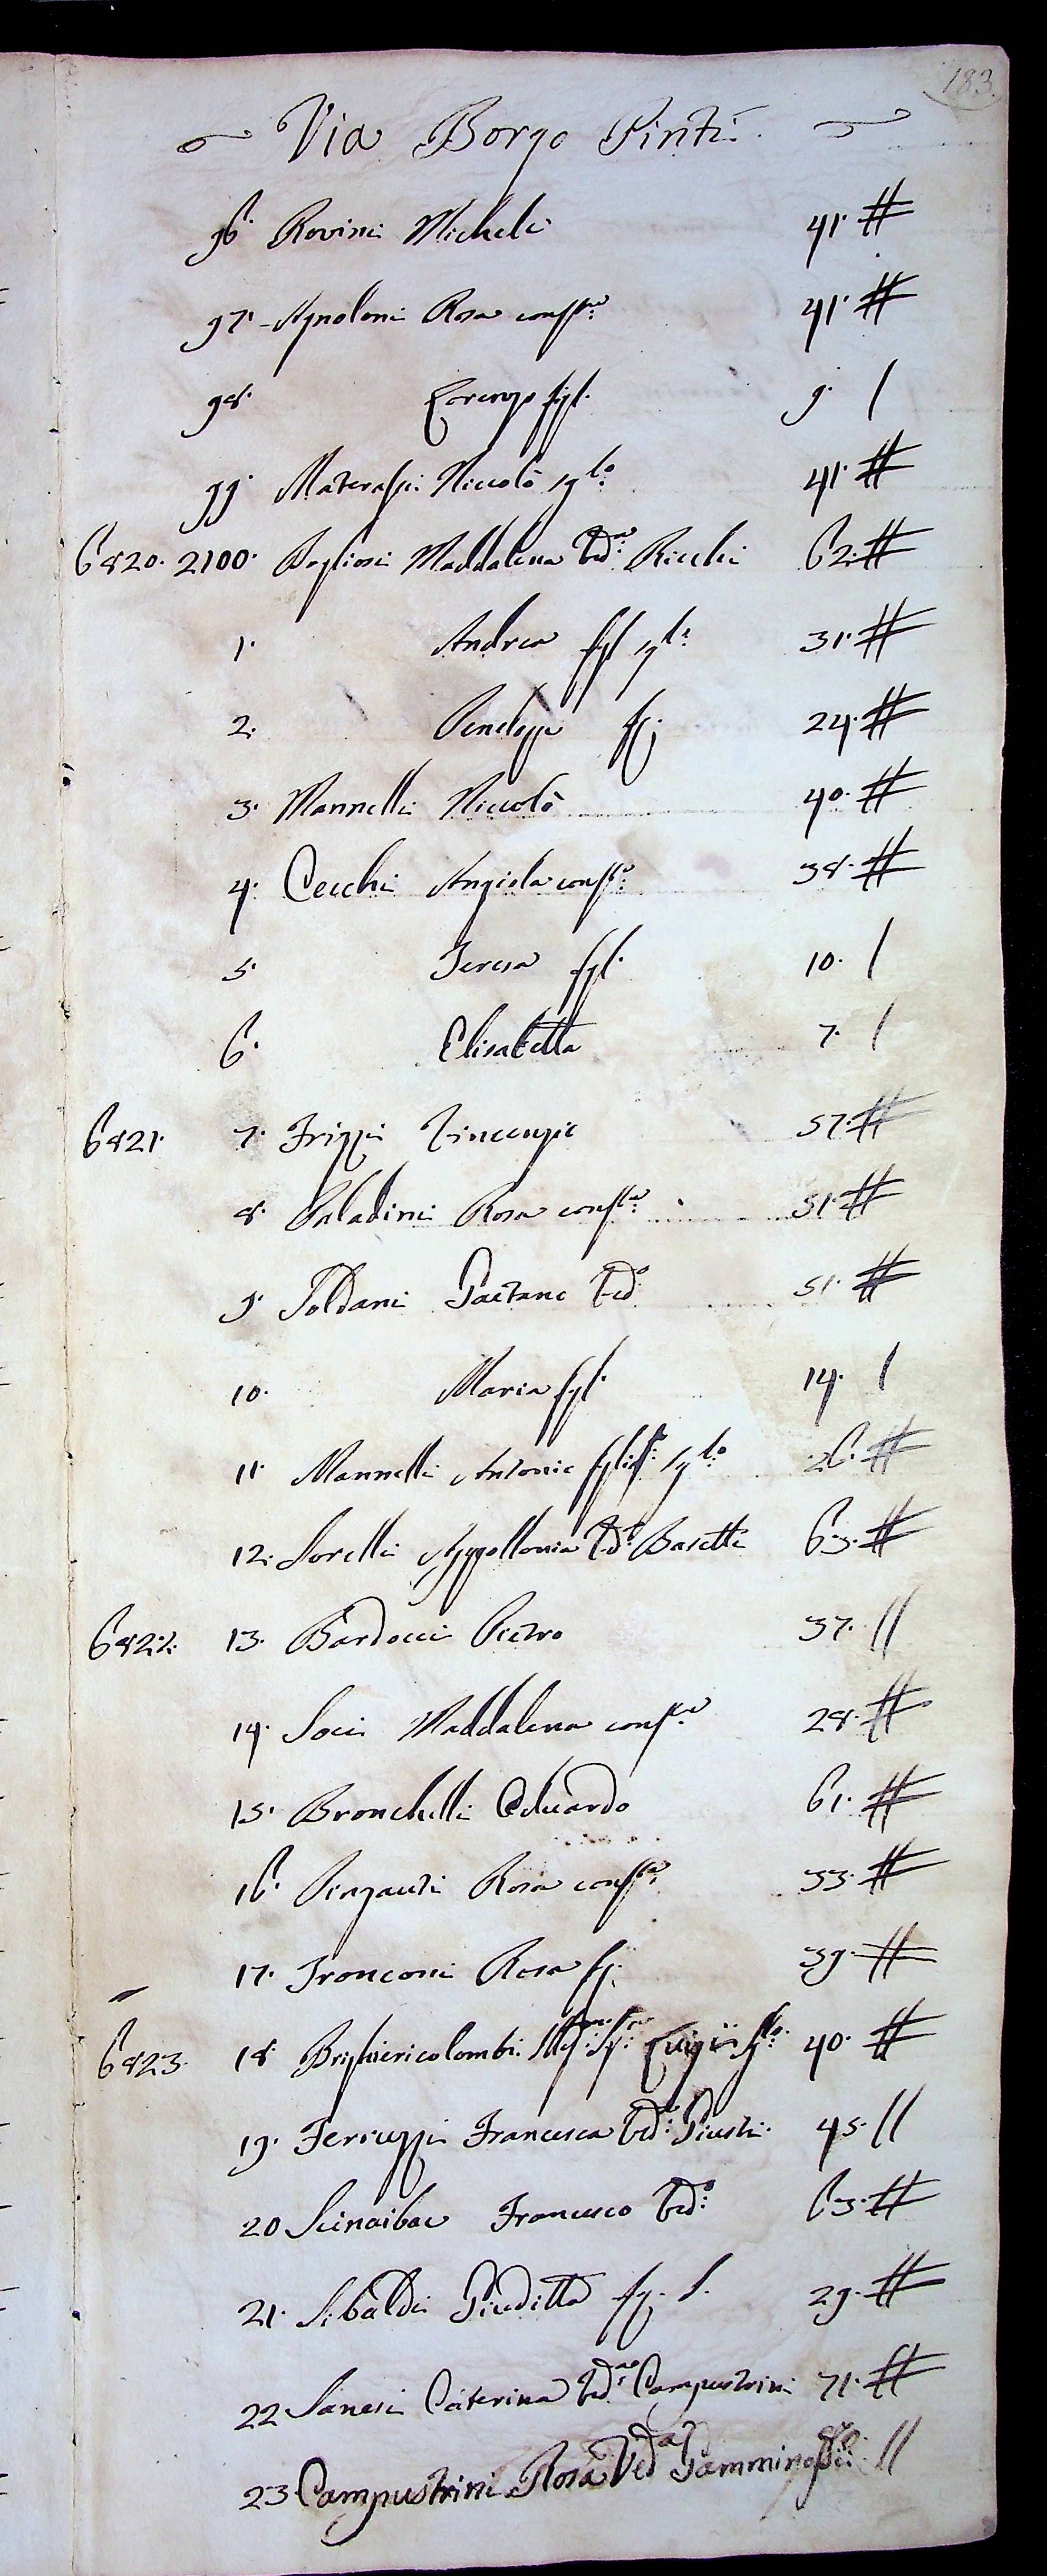 183.
Via Borgo Pinti
96. Rovini Michele 41. #
97. Agnoloni Rosa conste. 41. #
98. Lorenzo figl. 9. /
99. Materassi Niccolò 41. #
6820. 2100. Maddalena Veda. Ricchi 62. #
1. Andrea figl 31. #
2. Peneloppe fig 24. #
3. Mannelli Niccolò 40. #
4. Cecchi Angiola conste. 38. #
5. Teresa figl. 10. /
6. Elisabetta 7. /
6821. 7. Frizzi Vincenzio 57. #
8. Paladini Rosa conste. 51. #
9. Soldani Gaetano Vedo 51. #
10. Maria figl. 14. /
11. Mannelli Antonio 26. #
12. Sorelli Appollonia Veda. Basetti 63. #
6822. 13. Barducci Pietro 37. //
14. Soci Maddalena conste. 28. #
15. Bronchelli Eduardo 61. #
16. Rosa conste. 33. #
17. Tronconi Rosa fig. 39. #
6823. 18. Luigi 40. #
19. Ferruzzi Francesca Veda. Giusti. 45. //
20 Francesco Vedo. 63. #
21. Sibaldi Giuditta fig. S. 29. #
22 Sanesi Caterina Veda. Campostrini 71. #
23. Campostrini Rosa Veda //